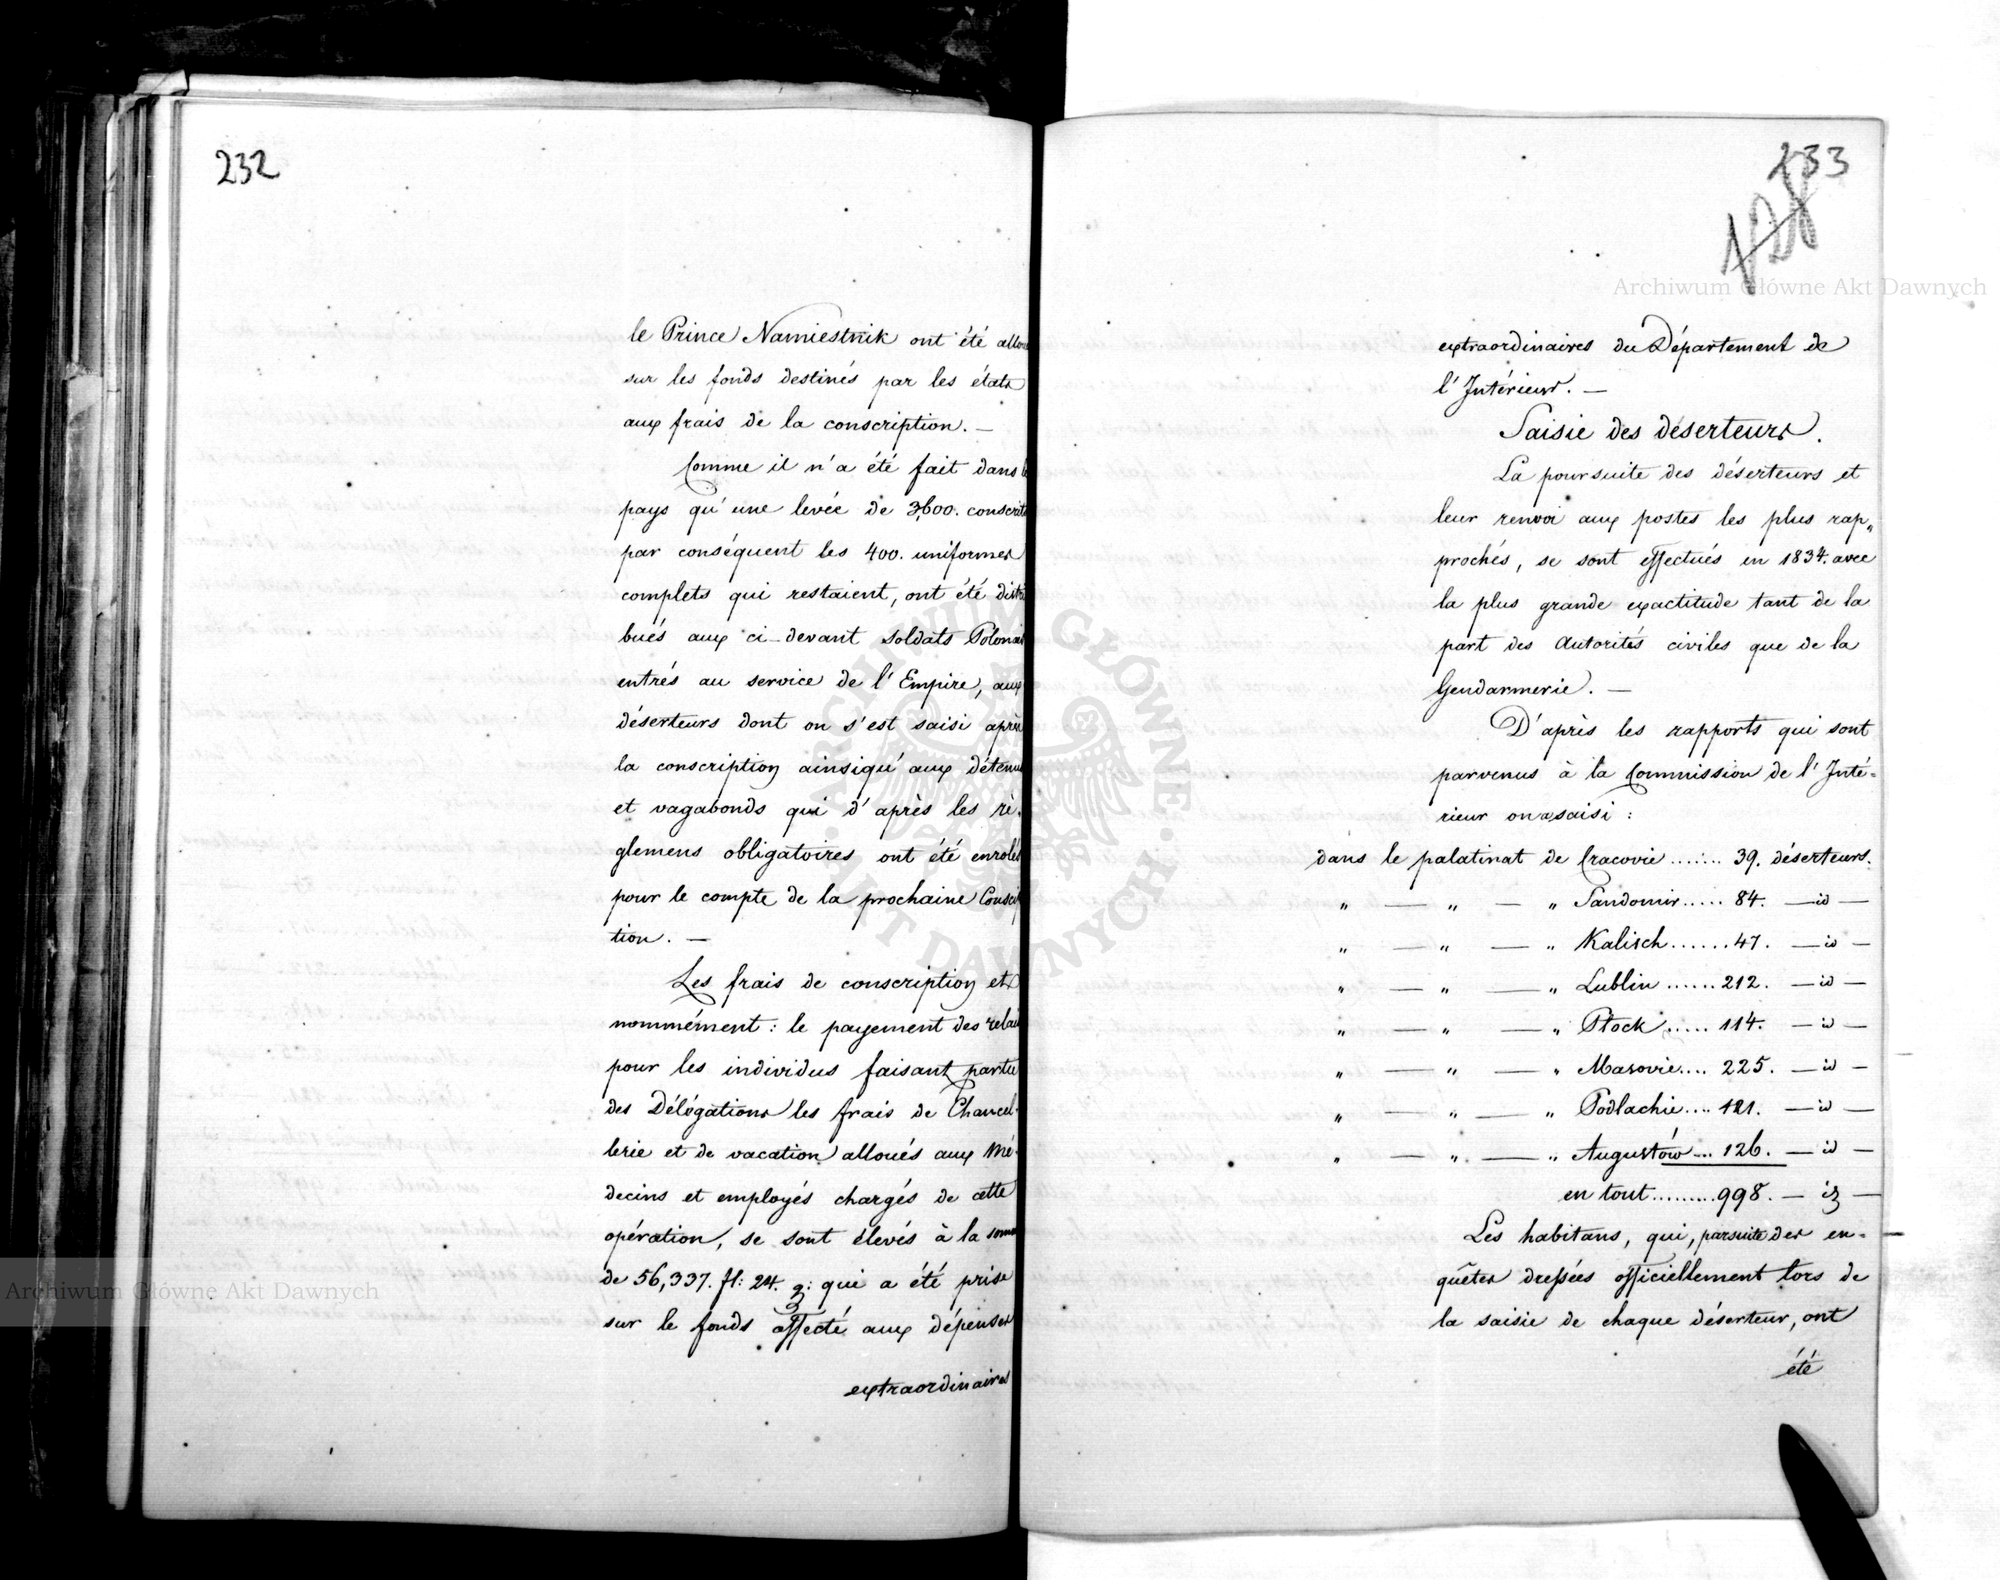 232
le Prince Namiestnik ont été alloué
sur les fonds destinés par les états
aux frais de la conscription. —
Comme il n'a été fait dans le
pays qu'une levée de 3,600. conscrits
par conséquent les 400. uniformes
complets qui restaient, ont été distri
bués aux ci-devant soldats Polonais
entrés au service de l'Empire, aux
déserteurs dont on s'est saisi après
la conscription ainsiqu'aux détenus
et vagabonds qui d'après les ré-
glemens obligatoires ont été enrolés
pour le compte de la prochaine Conscrip
tion. —
Les frais de conscription et
nommément: le payement des relais
pour les individus faisant partie
des Délégations les frais de Chancel-
lerie et de vacation alloués aux Mé-
decins et employés chargés de cette
opération, se sont élevés à la somme
de 56,337. fl: 24. g: qui a été prise
sur le fonds affecté aux dépenses
extraordinaires
233
128
extraordinaires du Département de
l'Intérieur. —
Saisie des déserteurs.
La poursuite des déserteurs et
leur renvoi aux postes les plus rap„
prochés, se sont effectués en 1834. avec
la plus grande exactitude tant de la
part des Autorités civiles que de la
Gendarmerie. —
D'après les rapports qui sont
parvenus à la Commission de l'Inté=
rieur on a saisi:
dans le palatinat de Cracovie ....... 39. déserteurs.
„ — „ — „ Sandomir ..... 84. — id —
„ — „ — „ Kalisch ...... 47. — id —
„ — „ — „ Lublin ...... 212. — id —
„ — „ — „ Plock ..... 114. — id —
„ — „ — „ Masovie .... 225. — id —
„ — „ — „ Podlachie .... 121. — id —
„ — „ — „ Augustów ... 126. — id —
en tout ......... 998. — id —
Les habitans, qui, parsuite des en=
quêtes dressées officiellement lors de
la saisie de chaque déserteur, ont
été
Archiwum Główne Akt Dawnych
Archiwum Główne Akt Dawnych
ARCHIWUM GŁÓWNE · AKT DAWNYCH ·